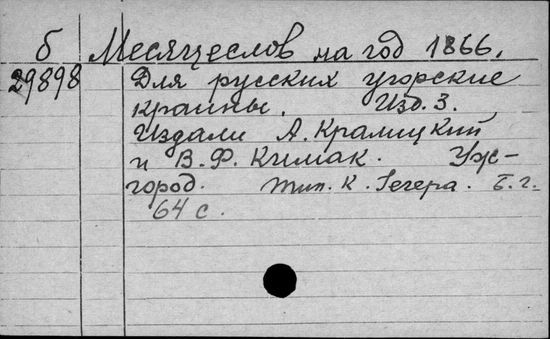 б Месяцеслов на год 1866.
29898 Для русских угорские
краины. Изд. 3.
Издали А. Кралицкий
и В. Ф. Кимак. Уж-
город. Тип. К. Гегера. Б. г.
64 с.